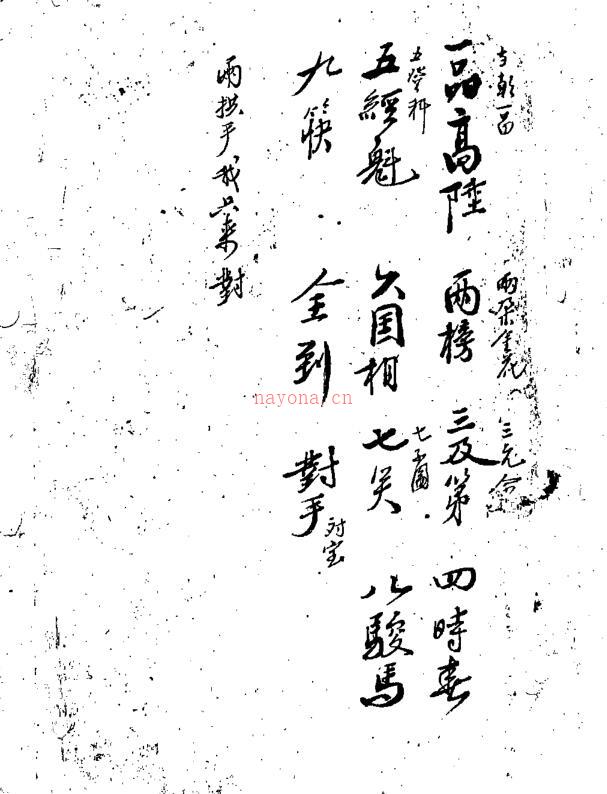 当朝一品 兩朶金花 三元合
一品高陞 兩榜 三及第 四時春
五登科 七子圖
五經魁 六国相 七 八駿馬
九筷 全到 對手 对宝
兩拱手 来對
nayona.cn